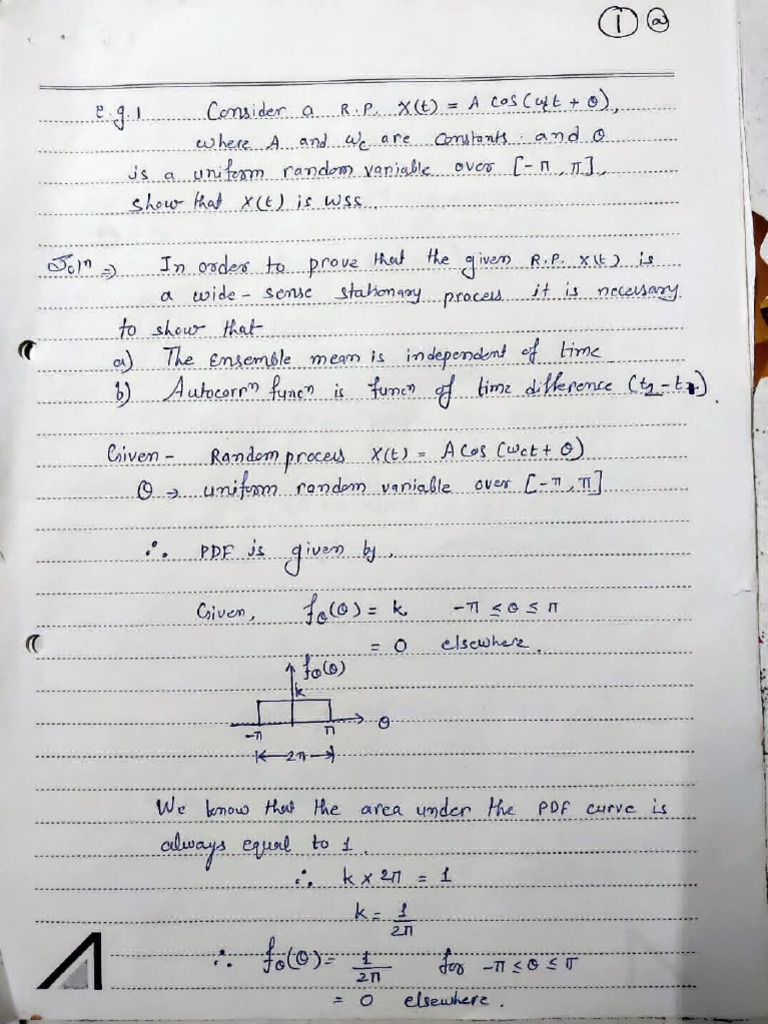 1 a
e.g.1 Consider a R.P. X(t) = A cos(ωct + θ),
where A and ωc are constants and θ
is a uniform random variable over [-π, π],
show that X(t) is WSS.
Soln ⇒ In order to prove that the given R.P. X(t) is
a wide-sense stationary process it is necessary
to show that
a) The ensemble mean is independent of time
b) Autocorrn funcn is funcn of time difference (t2-t1).
Given - Random process X(t) = A cos(ωct + θ)
θ → uniform random variable over [-π, π]
∴ PDF is given by,
Given, fθ(θ) = k -π ≤ θ ≤ π
= 0 elsewhere.
fθ(θ)
k
θ
-π π
2π
We know that the area under the PDF curve is
always equal to 1.
∴ k x 2π = 1
k = 1/2π
∴ fθ(θ) = 1/2π for -π ≤ θ ≤ π
= 0 elsewhere.